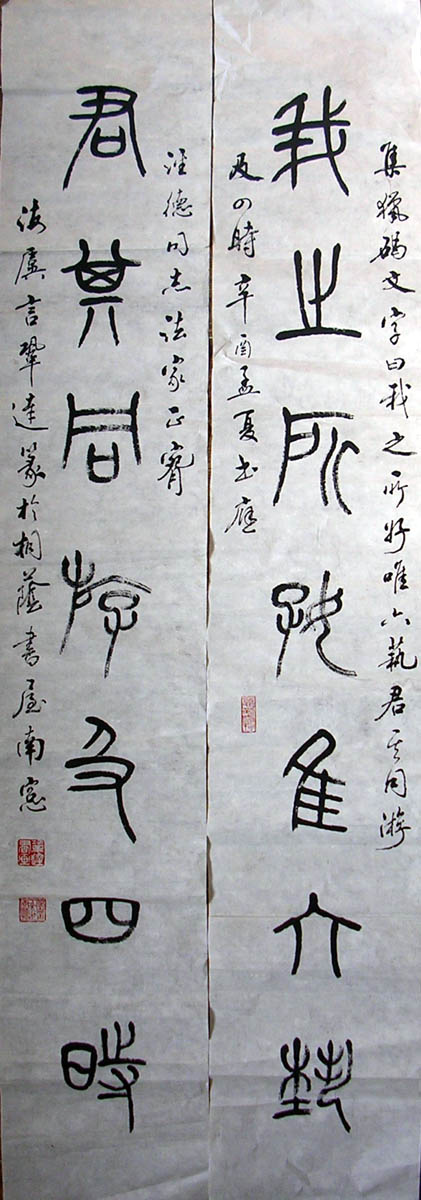 集獵碣文字曰我之所好唯六藝君其同游
我之所好隹六埶
及四時辛酉孟夏書應
德同志法家正
君其同游及四時
海虞言鞏達篆於桐蔭書屋南窗